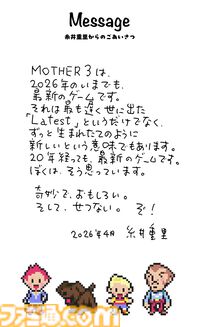 Message
糸井重里からのごあいさつ
MOTHER3は、
2026年のいまでも、
最新のゲームです。
それは最も遅く世に出た
「Latest」というだけでなく、
ずっと生まれたてのように
新しいという意味でもあります。
20年経っても、最新のゲームです。
ぼくは、そう思っています。
奇妙で、おもしろい。
そして、せつない。ぞ！
2026年4月 糸井重里
ファミ通.com